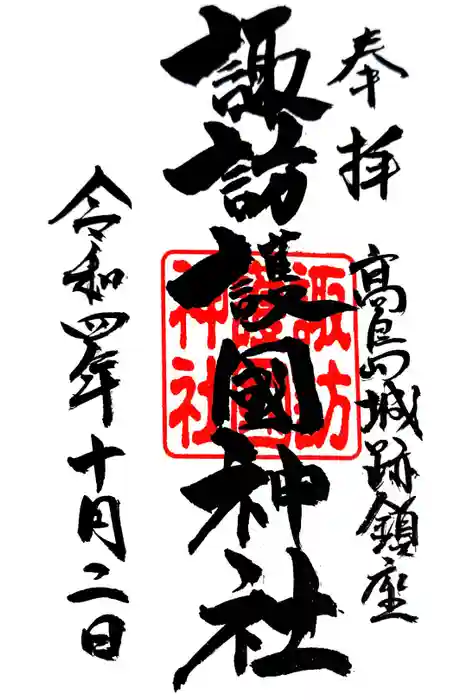 奉拝 高島城跡鎮座
諏訪護國神社
諏訪
護國
神社
令和四年十月二日